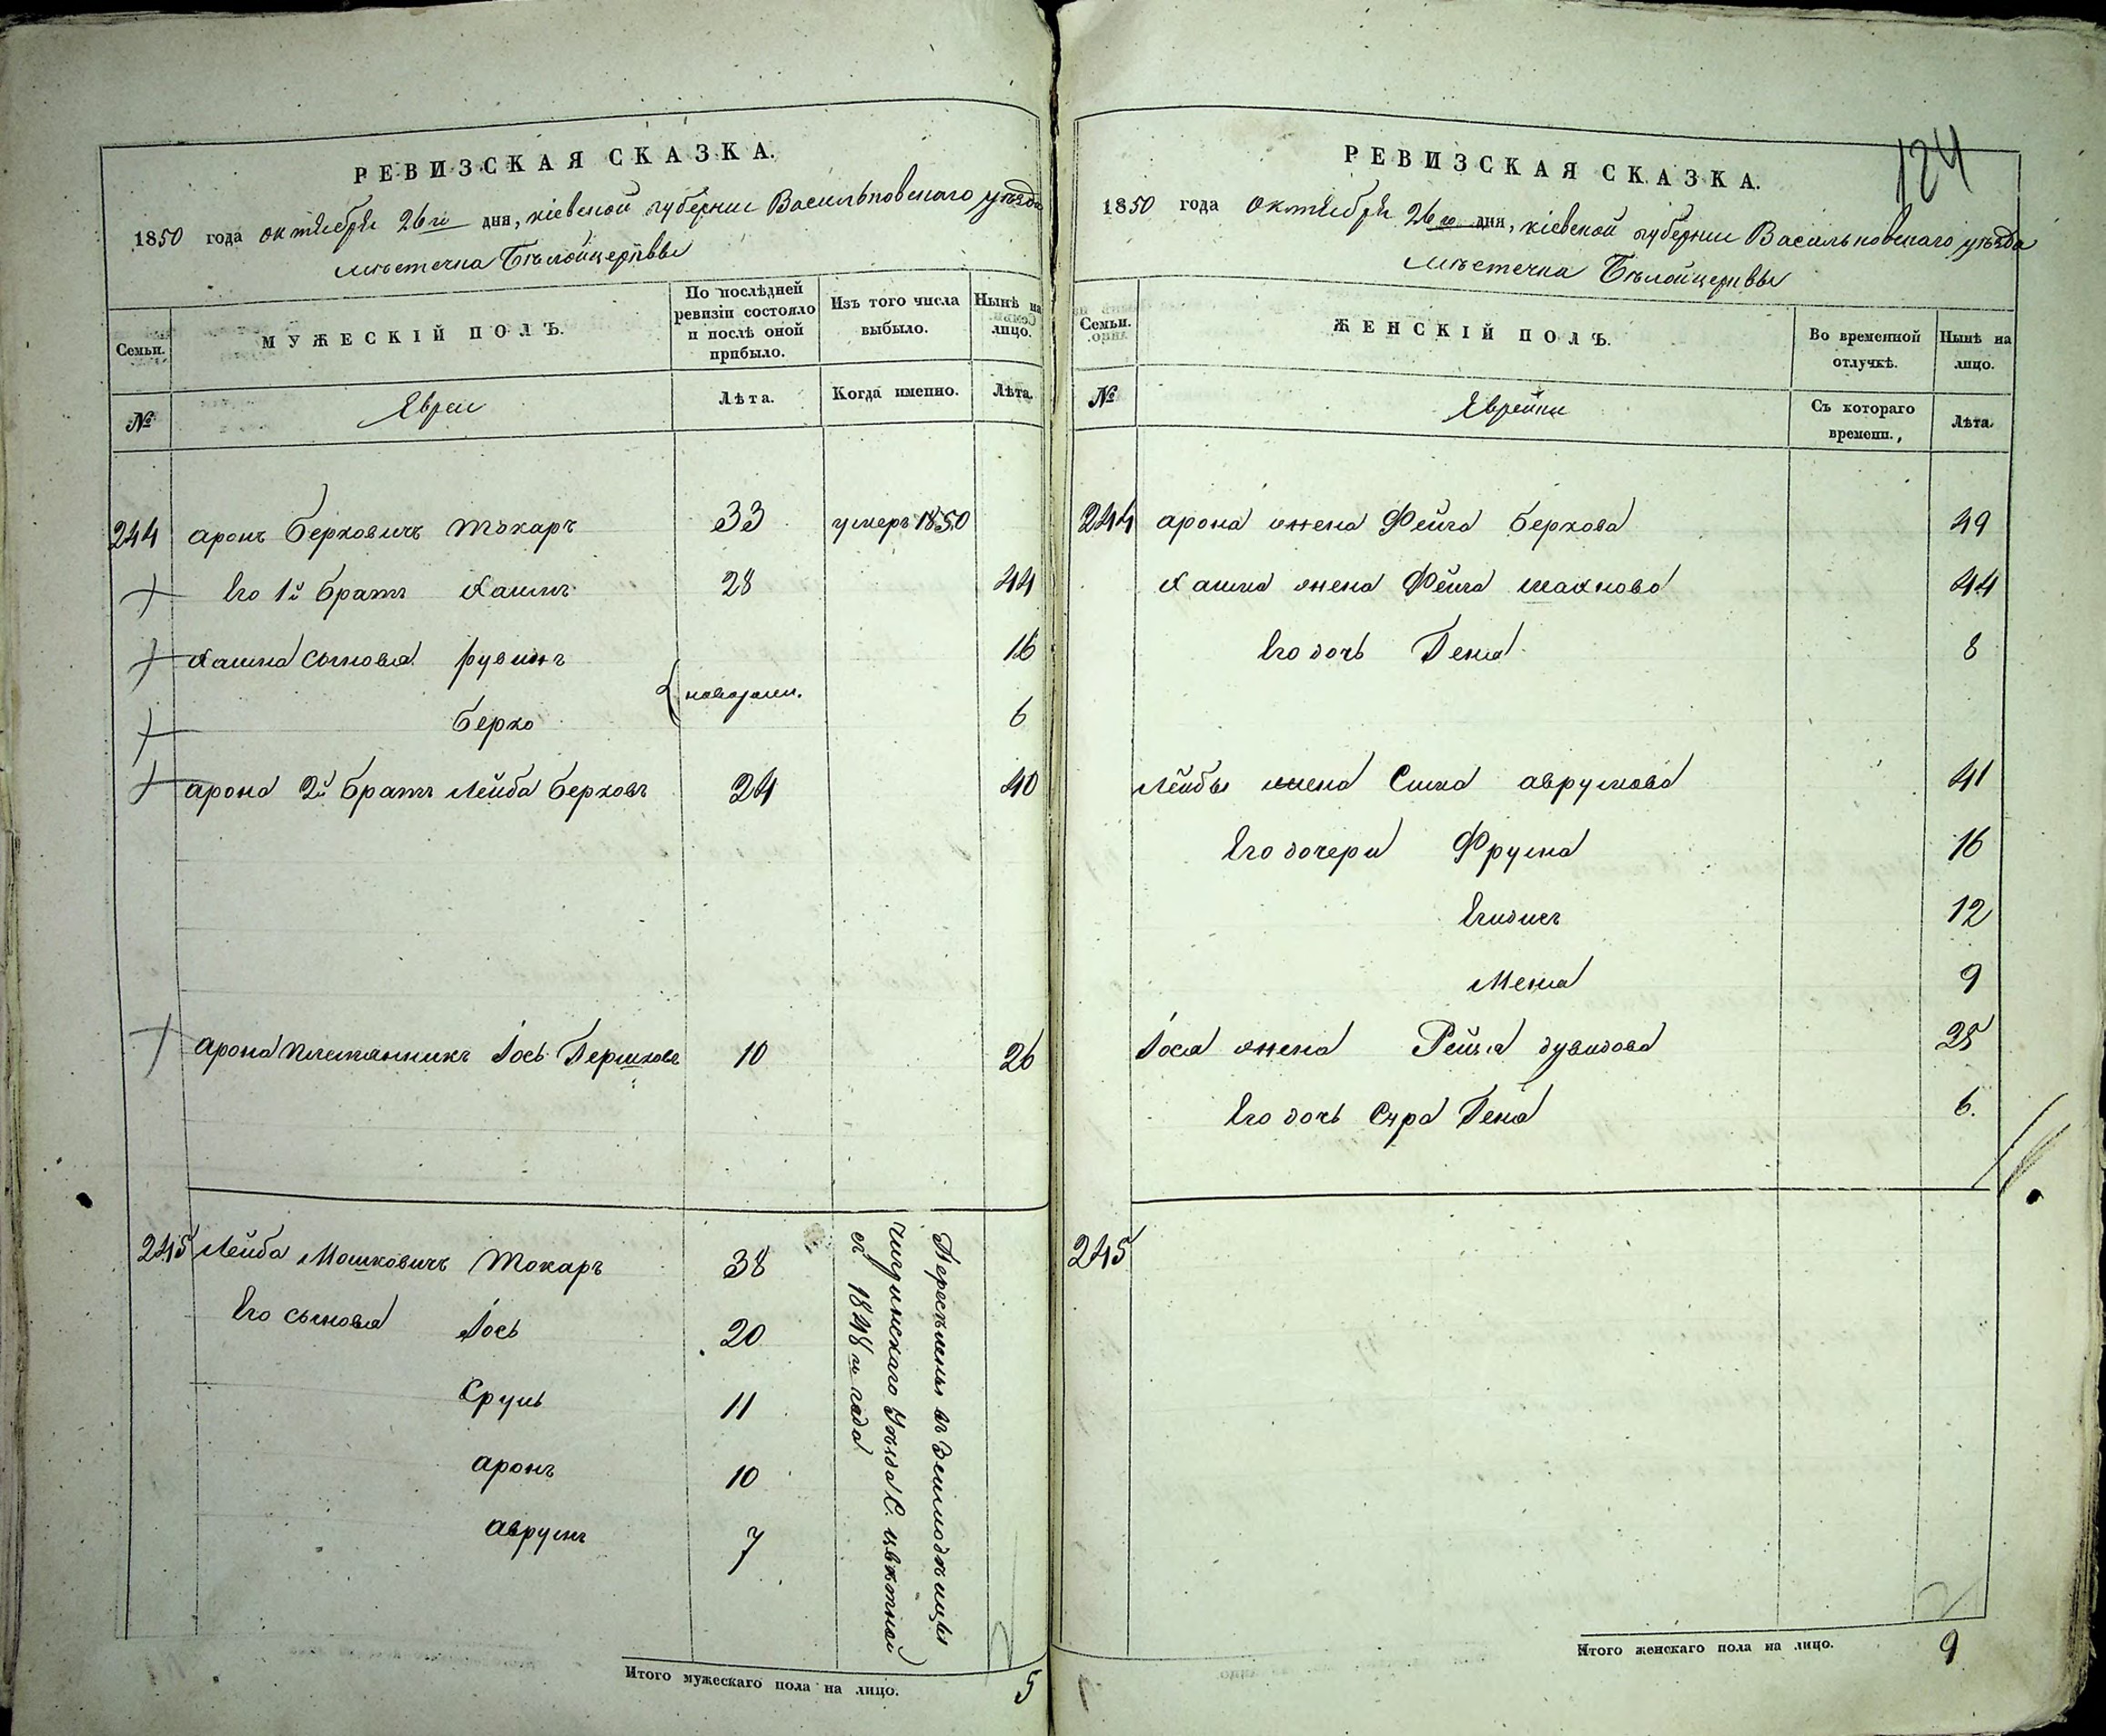 РЕВИЗСКАЯ СКАЗКА.
1850 года октября 26го дня, кіевской губерніи Васильковскаго уѣзда
мѣстечка Бѣлойцеркви
Семьи.
МУЖЕСКІЙ ПОЛЪ.
По послѣдней ревизіи состояло и послѣ оной прибыло.
Изъ того числа выбыло.
Нынѣ на лицо.
№
Евреи
Лѣта.
Когда именно.
Лѣта.
244 аронъ Берковичъ Токаръ 33 умеръ 1850
Его 1й братъ Хаимъ 28 44
Хаима сыновья рувинъ 16
новорожд.
Берко 6
арона 2й братъ Лейба Берковъ 24 40
арона племянникъ Іось Гершковъ 10 26
245 Лейба Мошковичъ Токаръ 38
Его сыновья Іось 20
Сруль 11
аронъ 10
аврумъ 7
Переселены въ Земледѣльцы
чигринскаго Уѣзда С. цвѣтной
съ 1848го года
Итого мужескаго пола на лицо. 5
124
РЕВИЗСКАЯ СКАЗКА.
1850 года октября 26го дня, кіевской губерніи Васильковскаго уѣзда
мѣстечка Бѣлойцеркви
Семьи.
ЖЕНСКІЙ ПОЛЪ.
Во временной отлучкѣ.
Нынѣ на лицо.
№
Еврейки
Съ котораго времени.
Лѣта.
244 арона жена Фейга Беркова 49
Хаима жена Фейга шахнова 44
Его дочь Геня 8
Лейбы жена Сима аврумова 41
Его дочери Фрума 16
12
Меня 9
Іося жена Рейзя дувидова 25
Его дочь Сура Геня 6.
245
Итого женскаго пола на лицо. 9